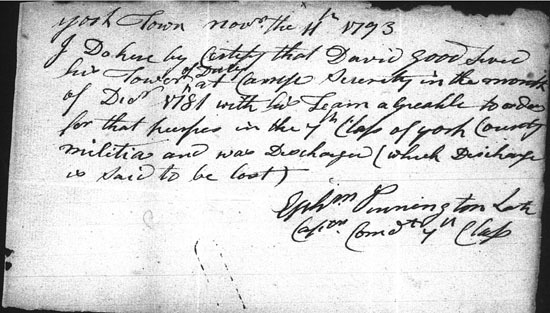 york Town novr. the 11th 1793
I Do here by Certify that David good Served
his Tower of Duty at Camp Security in the month
of Decr 1781 with his Team agreable to orders
for that purpes in the 7th Class of york County
militia and was Discharged (which Discharge
is said to be lost)
Ephm Pinnington Late
Capn Comdt 7th Class